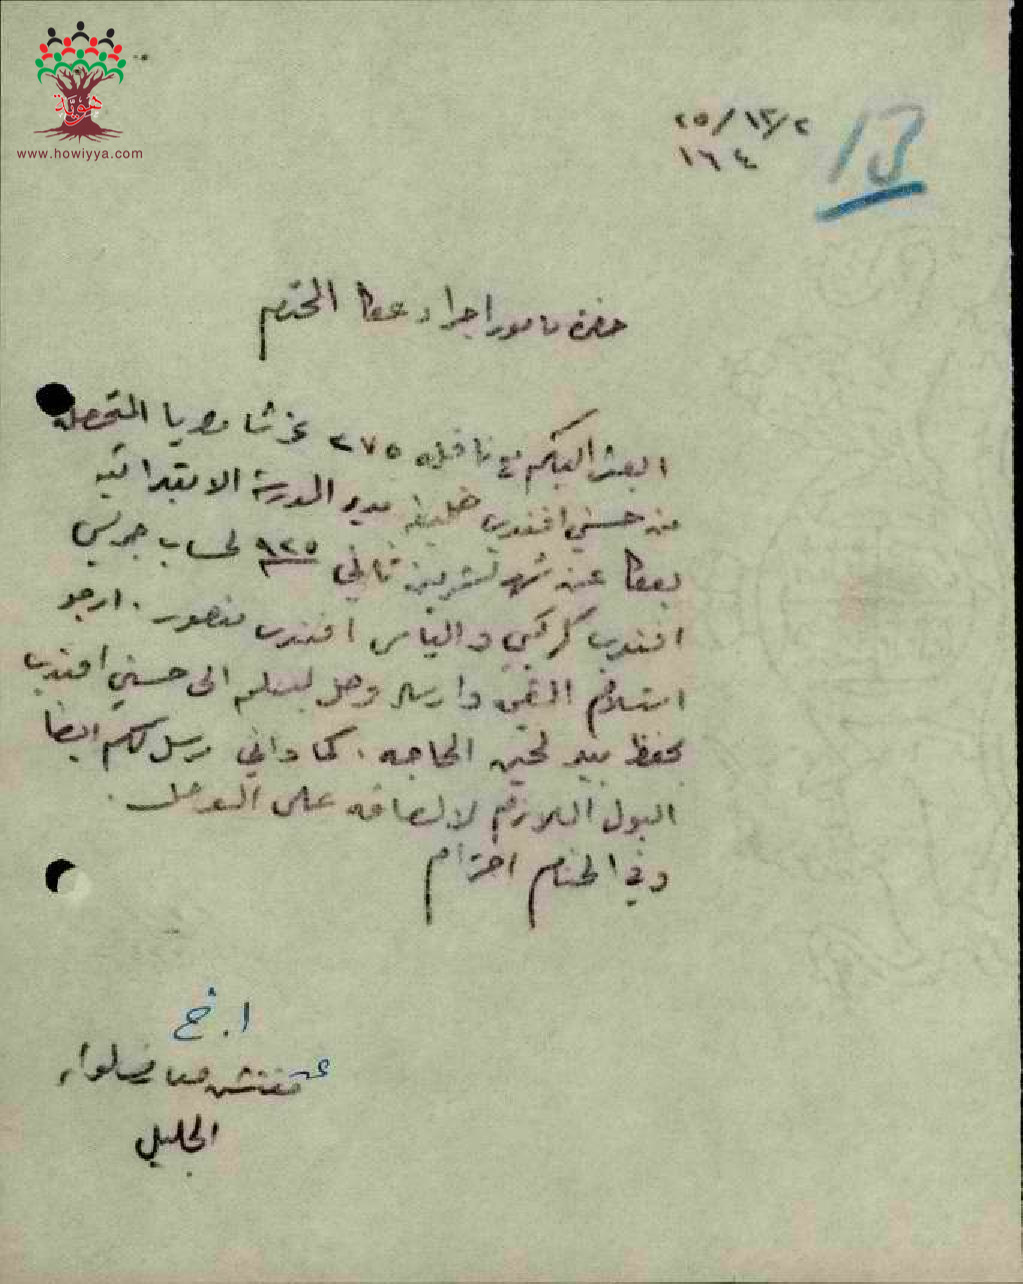 هوية
www.howiyya.com
٢٥/١٢/٢
١٦٤
13
حضرة مامور اجراء عكا المحترم
ابعث اليكم مع ناقله ٢٧٥ غرشا مصريا المتحصله
من حسني افندي خليفه مدير المدرسة الابتدائيه
بعكا عن شهر تشرين ثاني ٩٢٥ لحساب جرجس
افندي كركبي والياس افندي منصور . ارجو
استلام المبلغ وارسال وصل ليسلم الى حسني افندي
يحفظ بيده لحين الحاجه . كما واني مرسل لكم ايضا
البول اللازم لالصاقه على الوصل .
وفي الختام احترام
ا . خ
عن مفتش معارف لواء
الجليل